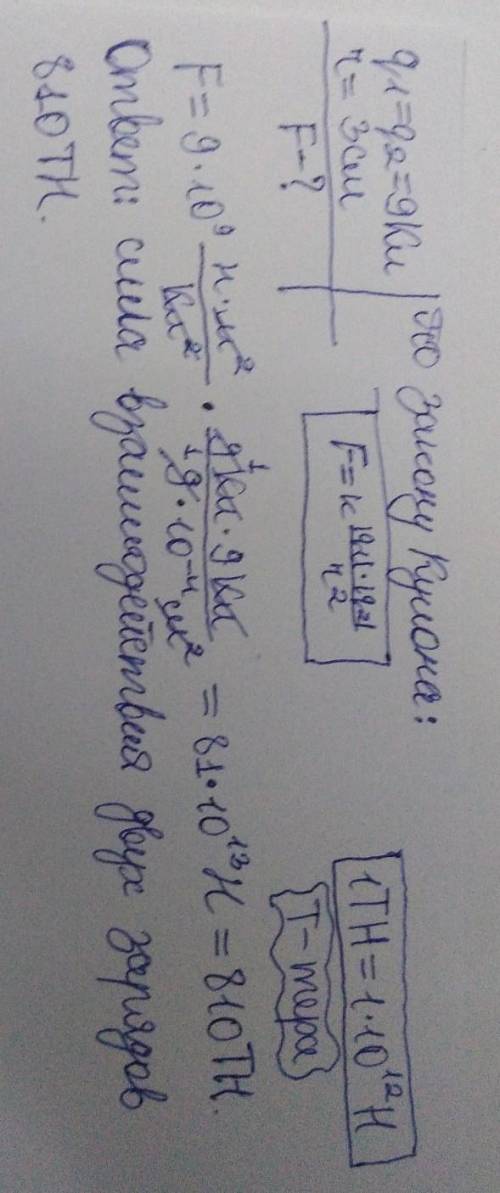 q₁=q₂=9Кл
r=3см
F-?
По закону Кулона:
F=k |q₁|·|q₂| / r²
1ТН=1·10¹²Н
Т-тера
F=9·10⁹ Н·м²/Кл² · 9Кл·9Кл / 9·10⁻⁴м² = 81·10¹³Н=810ТН.
1
1
Ответ: сила взаимодействия двух зарядов
810ТН.